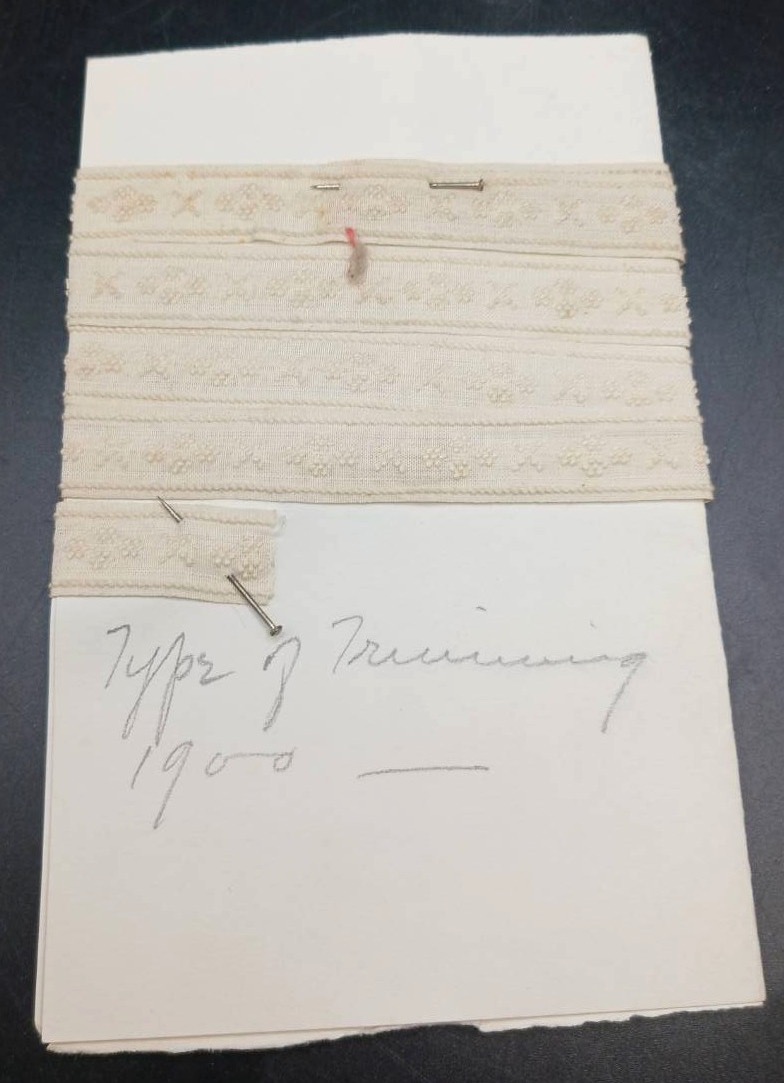 Type of Trimming
1900 —